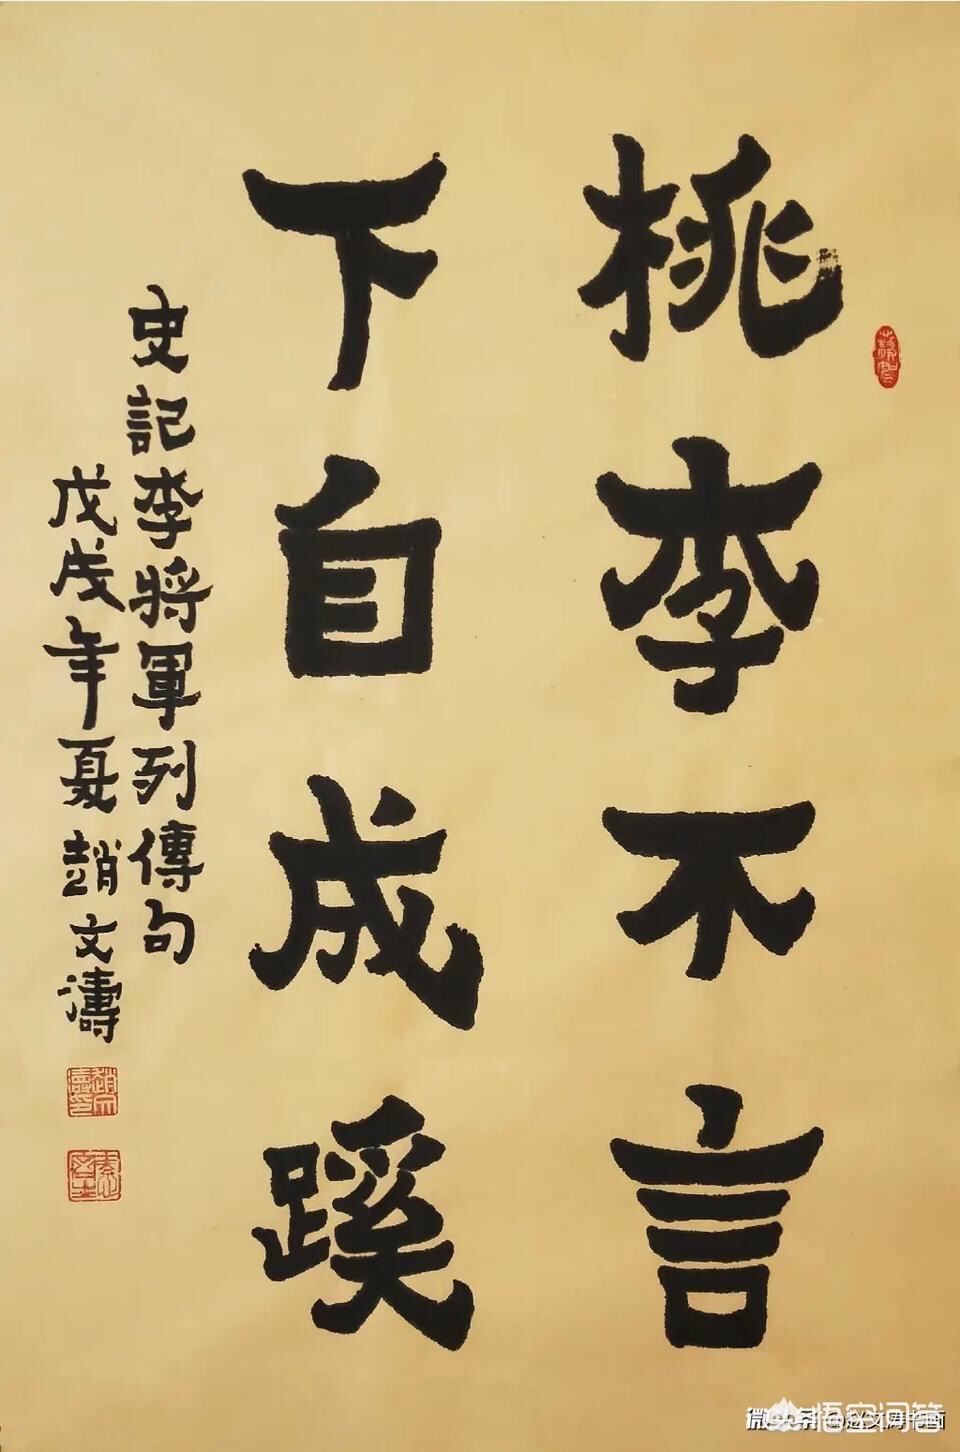 桃李不言
下自成蹊
史記李將軍列傳句
戊戌年夏趙文濤
悟空问答